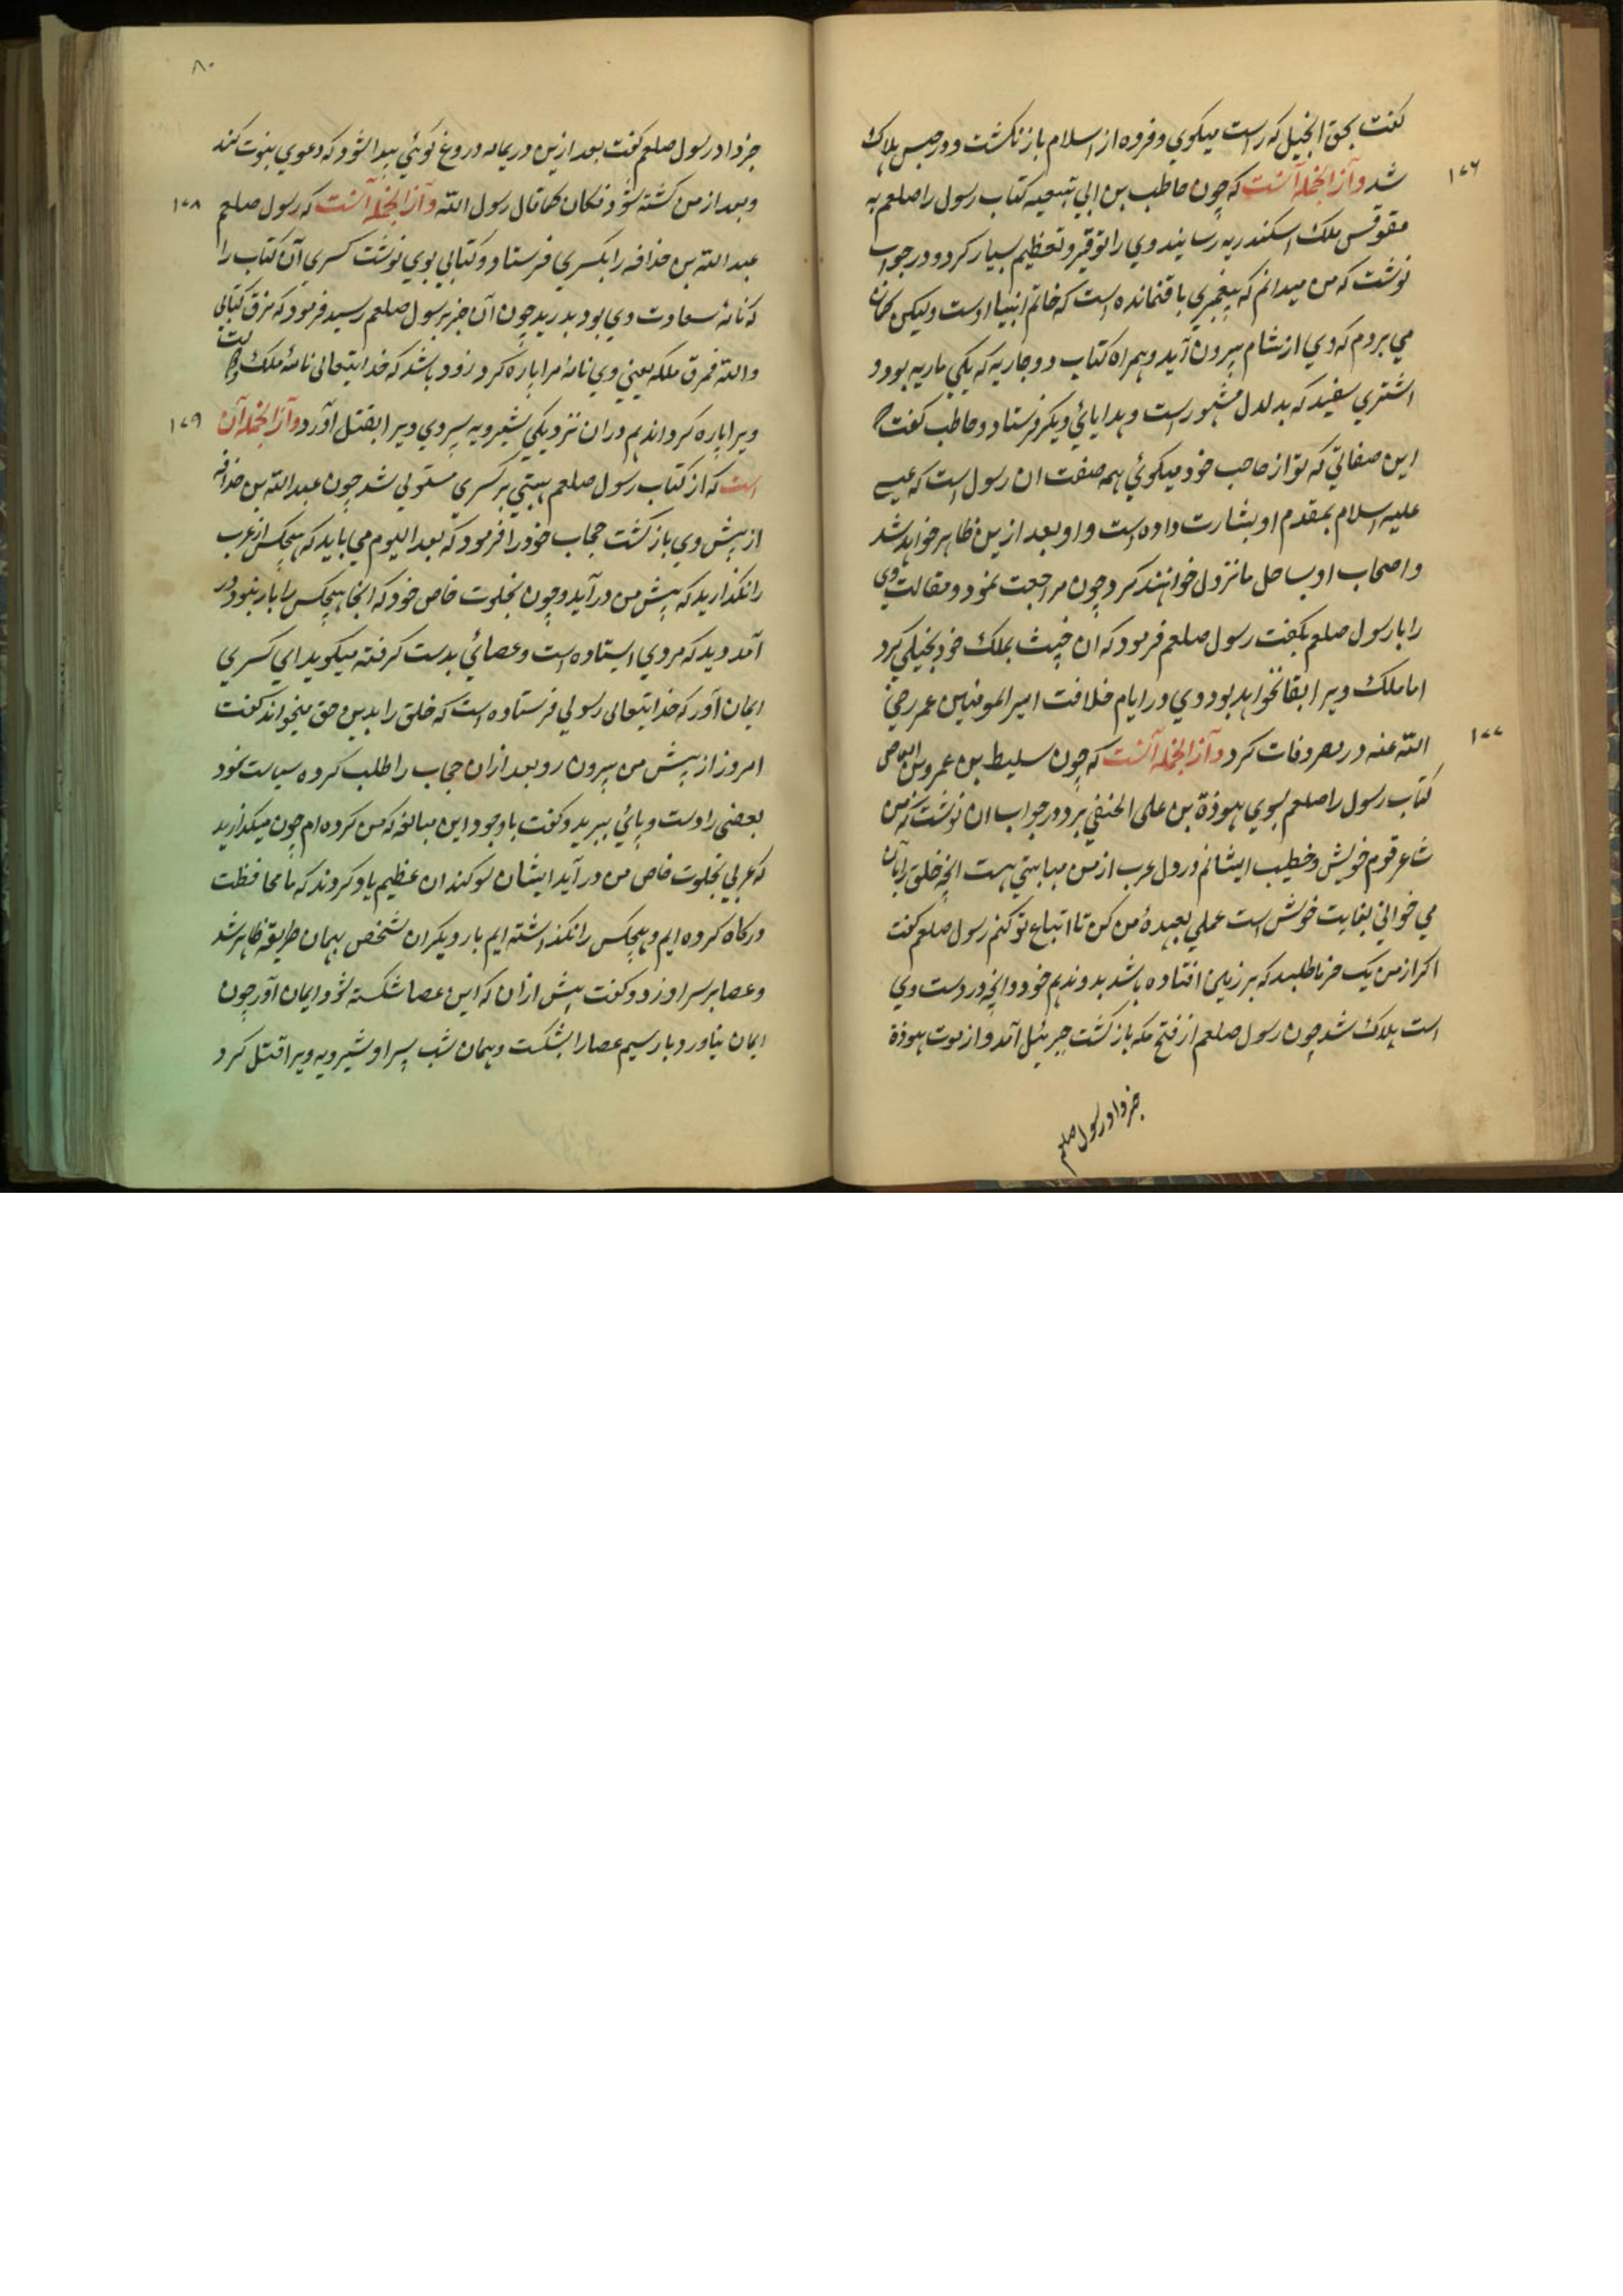 گفت بحق انجیل که راست میکوي و فروه از اسلام باز نکشت و در حبس هلاک
۱۷۶
شد وازانجمله آنست که چون حاطب بن ابي بلتعه کتاب رسول را صلعم به
مقوقس ملک اسکندریه رسانید وي را توقیر و تعظیم بسیار کرد و در جواب
نوشت که من میدانم که پیغمبري باقیمانده است که خاتم انبیا اوست ولیکن کمان
مي بردم که وي از شام بیرون آید و همراه کتاب دو جاریه که یکي ماریه بود و
اشتري سفید که بدلدل مشهور است و هدایائي دیکر فرستاد و حاطب کفت
این صفاتي که تو از صاحب خود میکوئي همه صفت ان رسول است که عیسے
علیه السلام بمقدم او بشارت داده است و او بعد ازین ظاهر خواهد شد
و اصحاب او بساحل ما نزول خواهند کرد چون مراجعت نمود و مقالت وي
را با رسول صلعم بکفت رسول صلعم فرمود که ان خبیث بملک خود بخیلي کرد
اما ملک ویرا بقا نخواهد بود و وي در ایام خلافت امیر المومنین عمر رضي
۱۷۷
الله عنه در مصر وفات کرد وازانجمله آنست که چون سلیط بن عمرو بن العاص
کتاب رسول را صلعم بسوي هوذة بن علی الحنفي برد در جواب ان نوشت که من
شاعر قوم خویش و خطیب ایشانم و در دل عرب از من مهابتي هست انچه خلق را بان
مي خواني بغایت خوش است عملي بعهدهٔ من کن تا اتباع تو کنم رسول صلعم کفت
اکر از من یک خرما طلبد که بر زمین افتاده باشد بدو ندهم خود و انچه در دست وي
است هلاک شد چون رسول صلعم از فتح مکه باز کشت جبرئیل آمد و از موت هوذة
خبر داد رسول صلعم
۸۰
خبر داد رسول صلعم کفت بعد ازین در یمامه دروغ کوئي پیدا شود که دعوي نبوت کند
۱۷۸
و بعد از من کشته شود فکان کما قال رسول الله وازانجمله آنست که رسول صلعم
عبد الله بن حذافه را بکسري فرستاد و کتابي بوي نوشت کسري آن کتاب را
که نامهٔ سعادت وي بود بدرید چون آن خبر برسول صلعم رسید فرمود که مزق کتابي
والله فمزق ملکه یعني وي نامهٔ مرا پاره کرد زود باشد که خدایتعالی نامهٔ ملک
۱۷۹
ویرا پاره کرداند هم دران نزدیکي شیرویه پسر وي ویرا بقتل آورد وازانجمله آن
است که از کتاب رسول صلعم هیبتي بر کسري مستولي شد چون عبد الله بن حذافه
از پیش وي باز کشت حجاب خود را فرمود که بعد الیوم مي باید که هیچکس از عرب
را نکذارید که پیش من در آید و چون بخلوت خاص خود که انجا هیچکس را بار نبود در
آمد دید که مردي ایستاده است و عصائي بدست کرفته میکوید اي کسري
ایمان آور که خدایتعالی رسولي فرستاده است که خلق را بدین حق میخواند کفت
امروز از پیش من بیرون رو بعد ازان حجاب را طلب کرده سیاست نمود
بعضي را دست و پائي ببرید و کفت با وجود این مبالغه که من کرده ام چون میکذارید
که عربي بخلوت خاص من در آید ایشان سوکندان عظیم یاد کردند که ما محافظت
درکاه کرده ایم و هیچکس را نکذاشته ایم بار دیکر ان شخص بهمان طریق ظاهر شد
و عصا بر سر او زد و کفت پیش ازان که این عصا شکسته شود ایمان آور چون
ایمان نیاورد بار سیم عصا را بشکست و همان شب پسر او شیرویه ویرا قتل کرد